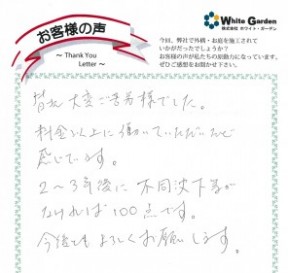 お客様の声
～ Thank You Letter ～
White Garden
株式会社 ホワイト・ガーデン
今回、弊社で外構・お庭を施工されて
いかがだったでしょうか？
お客様の声が私たちの原動力になっています。
ぜひご感想をお聞かせ下さい。
皆様 大変ご苦労様でした。
料金以上に働いていただいたと
感じています。
2～3年後に 不同沈下等が
なければ 100点です。
今後ともよろしくお願いします。